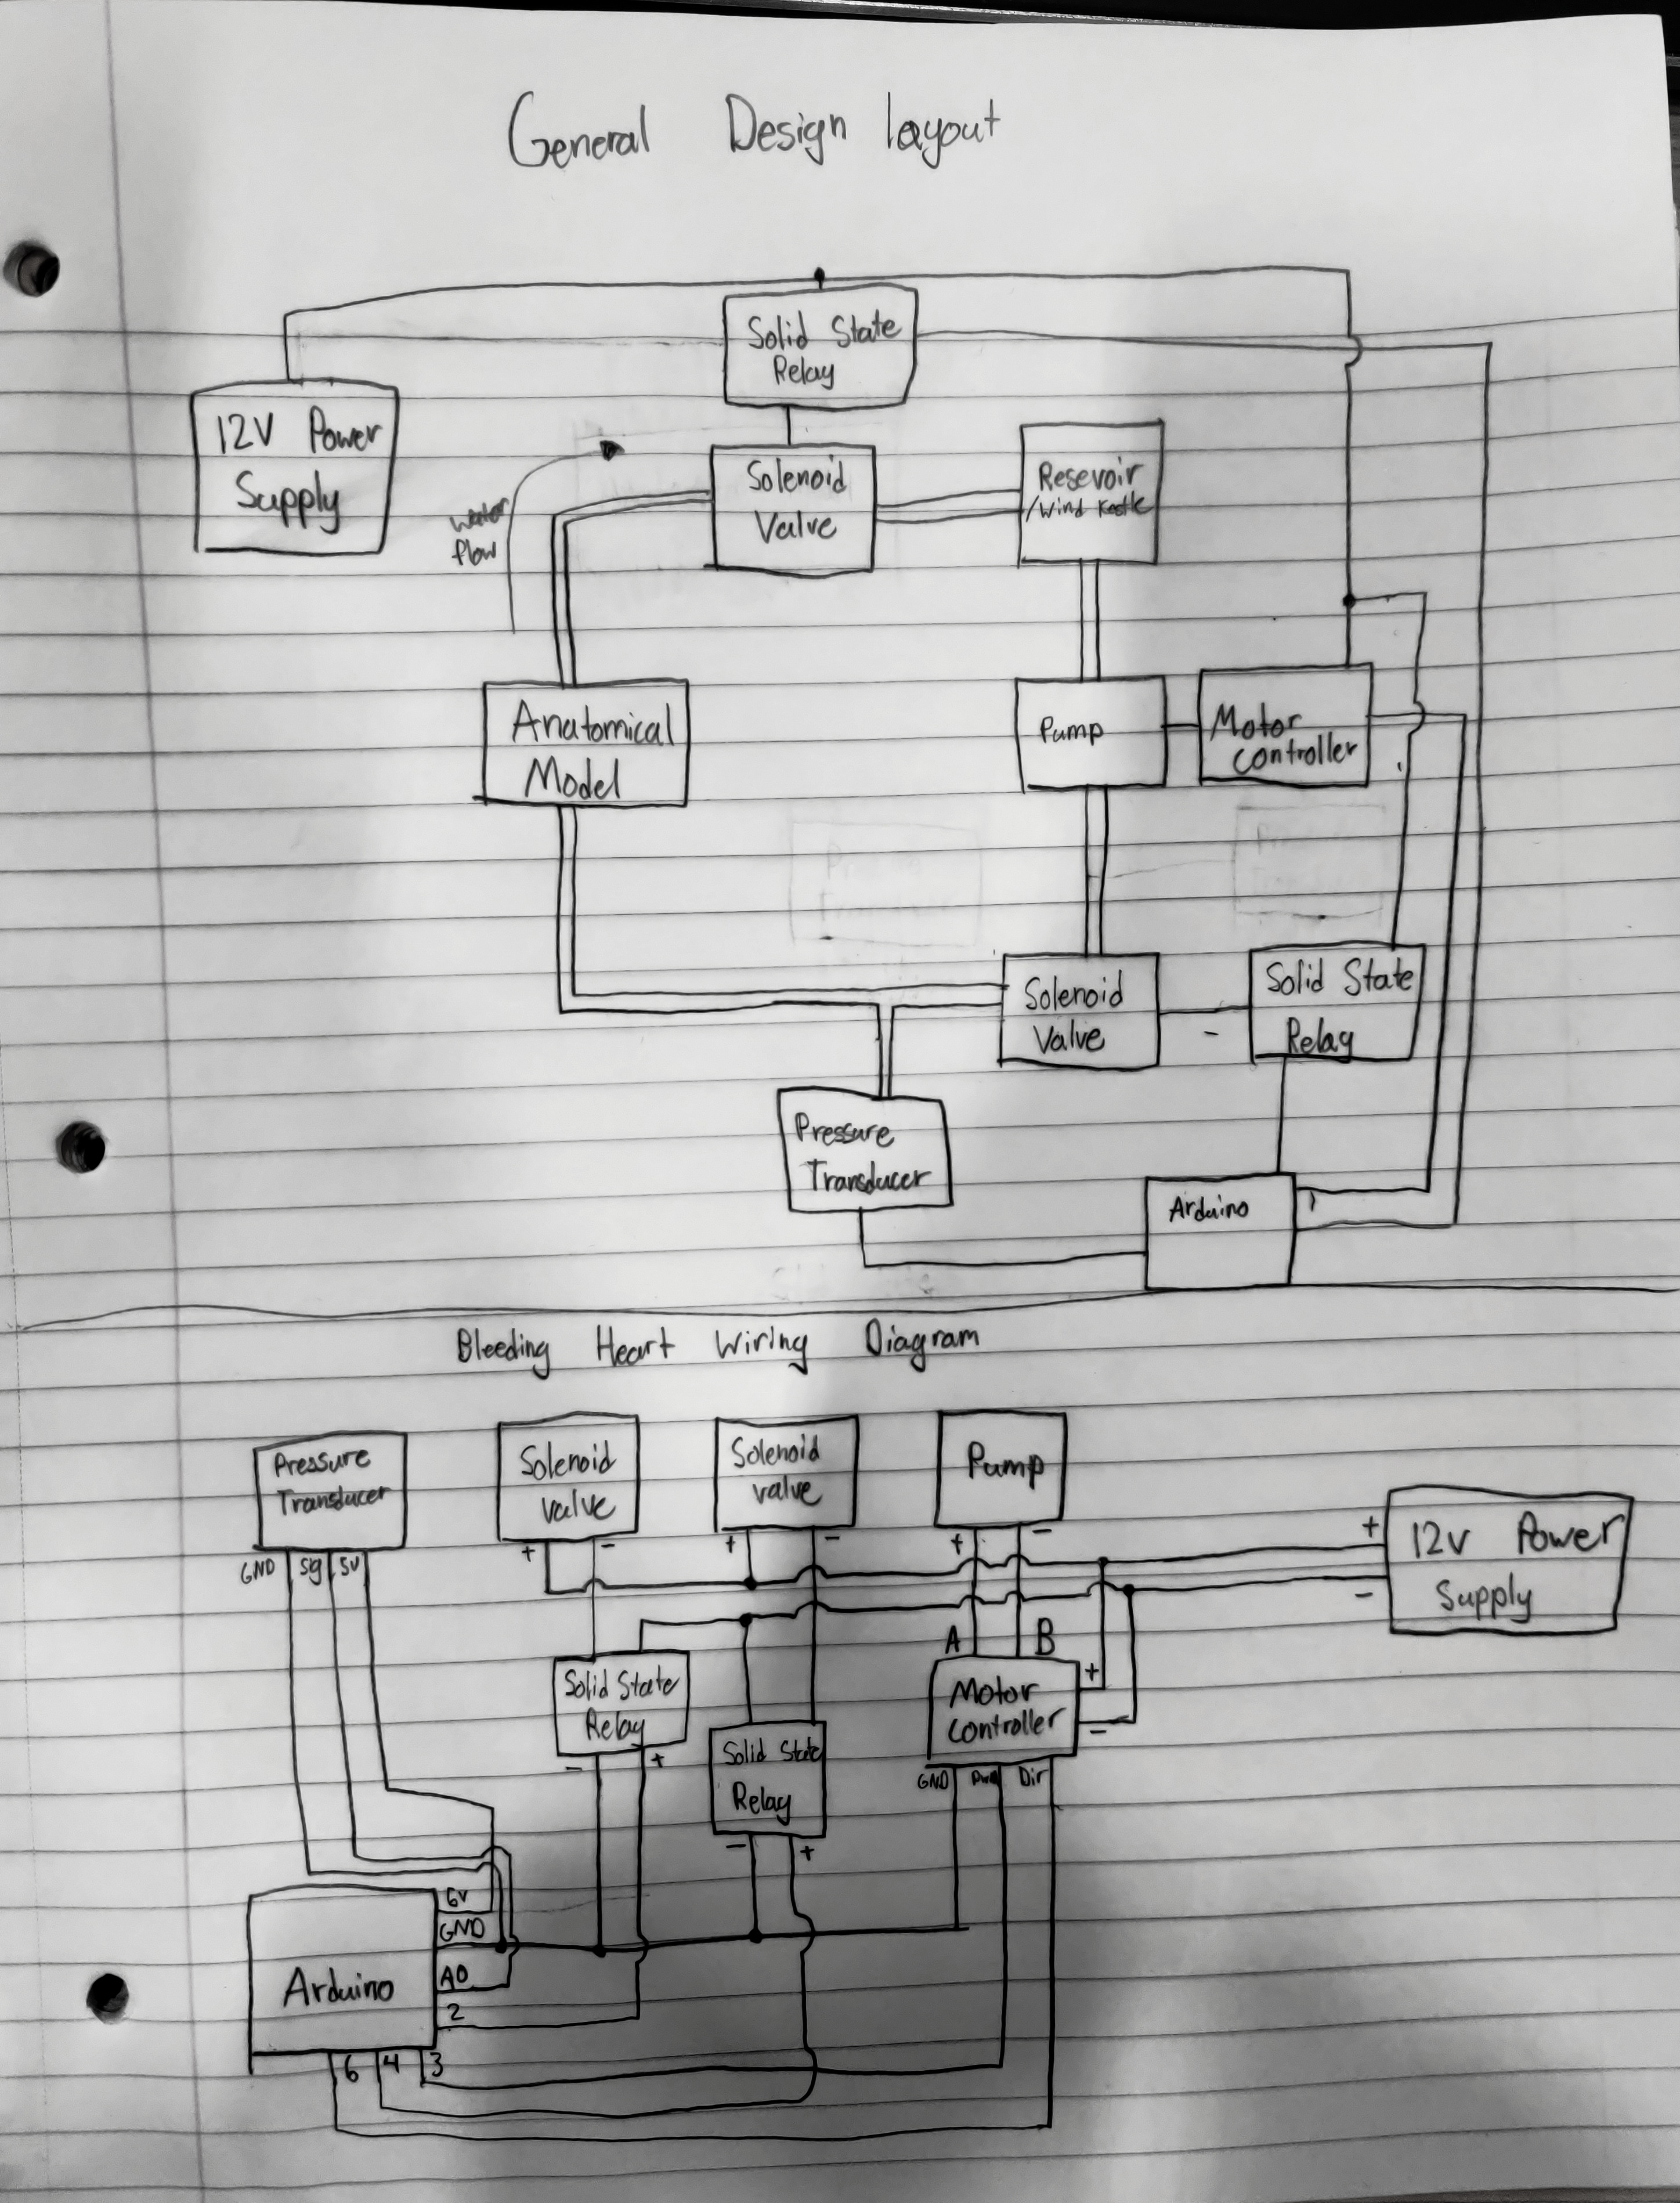 General Design layout
Solid State
Relay
12V Power
Supply
water
flow
Solenoid
Valve
Resevoir
/Wind Kestle
Anatomical
Model
Pump
Motor
controller
Solenoid
Valve
-
Solid State
Relay
Pressure
Transducer
Arduino
Bleeding Heart Wiring Diagram
Pressure
Transducer
GND sig 5v
Solenoid
valve
+ -
Solenoid
valve
+ -
Pump
+ -
12v Power
Supply
+
-
A B
Solid State
Relay
- +
Solid State
Relay
- +
Motor
controller
+
-
GND Dir
Arduino
GND
A0
2
6 4 3